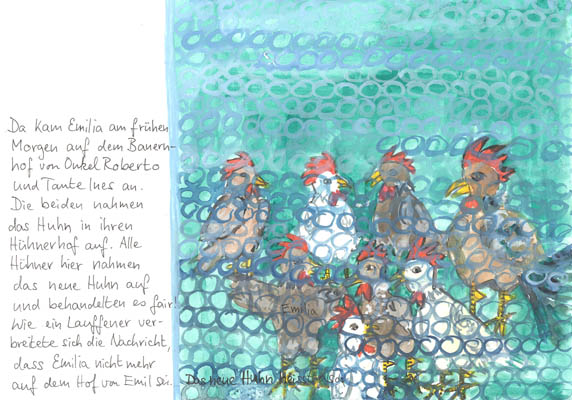 Da kam Emilia am frühen
Morgen auf dem Bauern-
hof von Onkel Roberto
und Tante Ines an.
Die beiden nahmen
das Huhn in ihren
Hühnerhof auf. Alle
Hühner hier nahmen
das neue Huhn auf
und behandelten es fair!
Wie ein Lauffener ver-
breitete sich die Nachricht,
dass Emilia nicht mehr
auf dem Hof von Emil sei.
Emilia
Das neue Huhn